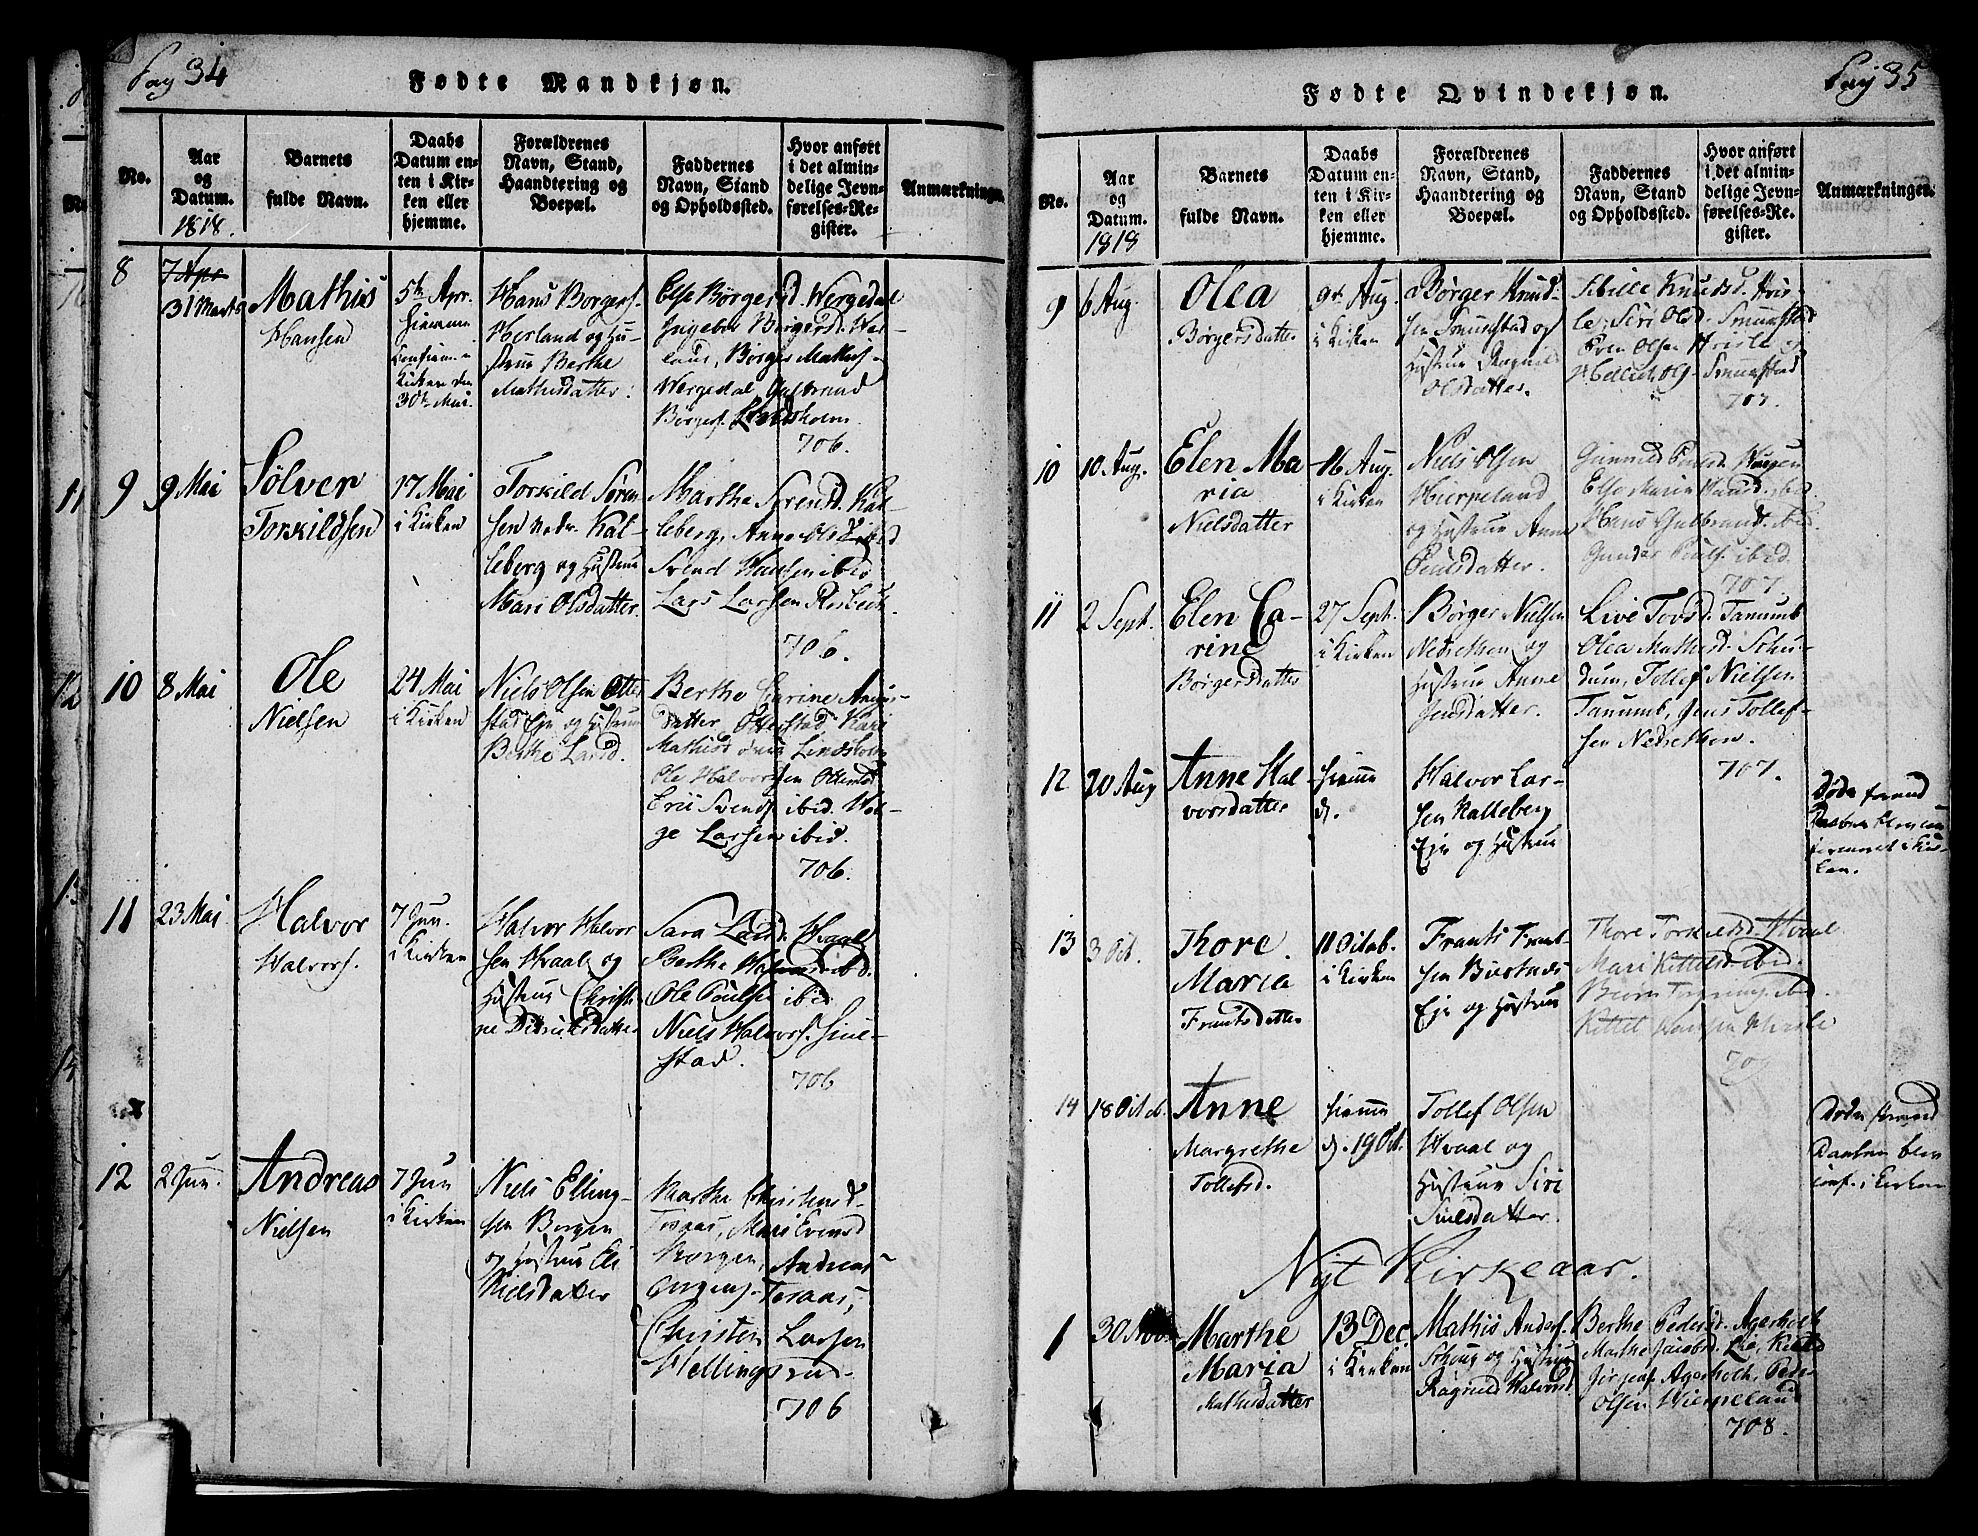 Pag 34
Fødte Mandkjøn.
No.
Aar
og
Datum.
1818.
Barnets
fulde Navn.
Daabs
Datum en-
ten i Kir-
ken eller
hjemme.
Forældrenes
Navn, Stand,
Haandtering og
Boepæl.
Faddernes
Navn, Stand
og Opholdssted.
Hvor anført
i det almin-
delige Jevn-
førelses-Re-
gister.
Anmærkninger.
8
7 Apr
31 Marts
Mathis
Hansen
5te Apr.
hiemme
Kirken den
30te Mai.
Hans Borgers.
Herland og Hu-
strue Berthe
Mathisdatter.
Else Børgersd. Wergedal
Ingebor Børgersd.
Børger Mathis-
Wergedal, Gulbrand
Børgers. Lindsholm
706.
9
9 Mai
Sølver
Torkildsen
17 Mai
i Kirken
Torkild Søren
sen Nedr. Kal-
leberg og Hustrue
Mari Olsdatter.
Marthe Sørensd. Kal-
leberg, Anne Olsd. ibid
Svend Hansen ibid
Lars Larsen Rosbech.
706.
10
8 Mai
Ole
Nielsen
24 Mai
i Kirken
Niels Olsen Otter
stad Eje og Hustrue
Berthe Larsd.
Berthe Carine
datter Otterstad Kari
Mathisd Lindsholm
Ole Halvorsen Otterstad
Eric Svends ibid. Hel-
ge Larsen ibid.
706.
11
23 Mai
Halvor
Halvors.
7 Jun.
i Kirken
Halvor Halvor
sen Hvaale og
Hustrue Christi
ne Didriksdatter
Sara Larsd. Hvaale
Berthe Halvorsd ibid.
Ole Poulsen ibid
Niels Halvors.
stad.
706
12
2 Jun.
Andreas
Nielsen
7 Jun
i Kirken
Niels Elling-
sen Borgen
og Hustrue Else
Nielsdatter
Marthe Christensd
Toraas, Mari Evensd
Borgen, Andreas
Jörgens. Toraas,
Christen Larsen
Hellingsrud.
706
Pag 35
Fødte Qvindekjøn.
No.
Aar
og
Datum.
1818
Barnets
fulde Navn.
Daabs
Datum en-
ten i Kir-
ken eller
hjemme.
Forældrenes
Navn, Stand,
Haandtering og
Boepæl.
Faddernes
Navn, Stand
og Opholdssted.
Hvor anført
i det almin-
delige Jevn-
førelses-Re-
gister.
Anmærkninger.
9
6 Aug.
Olea
Børgersdatter
9de Aug.
i Kirken
Børger Knud-
sen Smuustad og
Hustrue Ragnild
Olsdatter.
Sibille Knudsd. Hvis-
le, Siri Olsd. Smuustad
Even Olsen Hvisle og
Smuustad
707.
10
10 Aug.
Elen Ma
ria
Nielsdatter
16 Aug.
i Kirken
Niels Olsen
Hierpeland
og Hustrue Anne
Poulsdatter.
Gunnild Poulsd. Haugen
Else Marie Hansd. ibid.
Hans Gulbrands. ibid.
Gunder Pouls. ibid.
707.
11
2 Sept.
Elen Ca-
rine
Børgersdatter
27 Sept.
i Kirken
Børger Nielsen
Nedrethen og
Hustrue Anne
Jensdatter.
Live Tovsd. Tanumb
Olea Mathisd. Schu-
dum, Tollef Nielsen
Tanumb, Jens Tollef-
sen Nedrethen.
707.
12
20 Aug
Anne Hal
vorsdatter
hiemme
d.
Halvor Lar-
sen Kalleberg
Eje og Hustrue
Døde forend
Daaben blev con
firmeret i Kir-
ken.
13
3 Oct.
Thore
Maria
Frantsdatter
11 Octob.
i Kirken
Frants Frant-
sen Biertnæs
Eje og Hustrue
Thore Torkildsd. Hvaal
Mari Kittelsd. ibid.
ibid.
Kittel Hansen Hvisle
707
14
18 Octob.
Anne
Margrethe
Tollefsd.
hiemme
d. 19 Oct.
Tollef Olsen
Hvaal og
Hustrue Siri
Poulsdatter.
Døde förend
Daaben blev
conf. i Kirken
Nyt Kirkeaar.
1
30 Nov.
Marthe
Maria
Mathisdatter
13 Dec.
i Kirken
Mathis Anders.
og Hustrue
Ragnild Halvorsd.
Berthe Pedersd. Agerholt
Marthe Jacobsd. Lie,
Agerholt, Peder
Olsen Hierpeland
708.